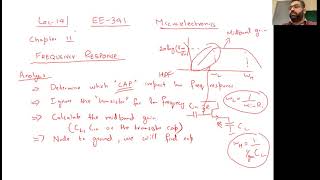 Lec-14 EE-341 Microelectronics
Chapter 11
FREQUENCY RESPONSE
Midband gain
20log
HPF ω_L ω_H
Analysis
⇒ Determine which "CAP" impact low freq. response
⇒ Ignore the "transistor" for low frequency
⇒ Calculate the midband gain
(C_L, C_in or the transistor cap)
⇒ Node to ground, we will find cap
C_in R
C_L